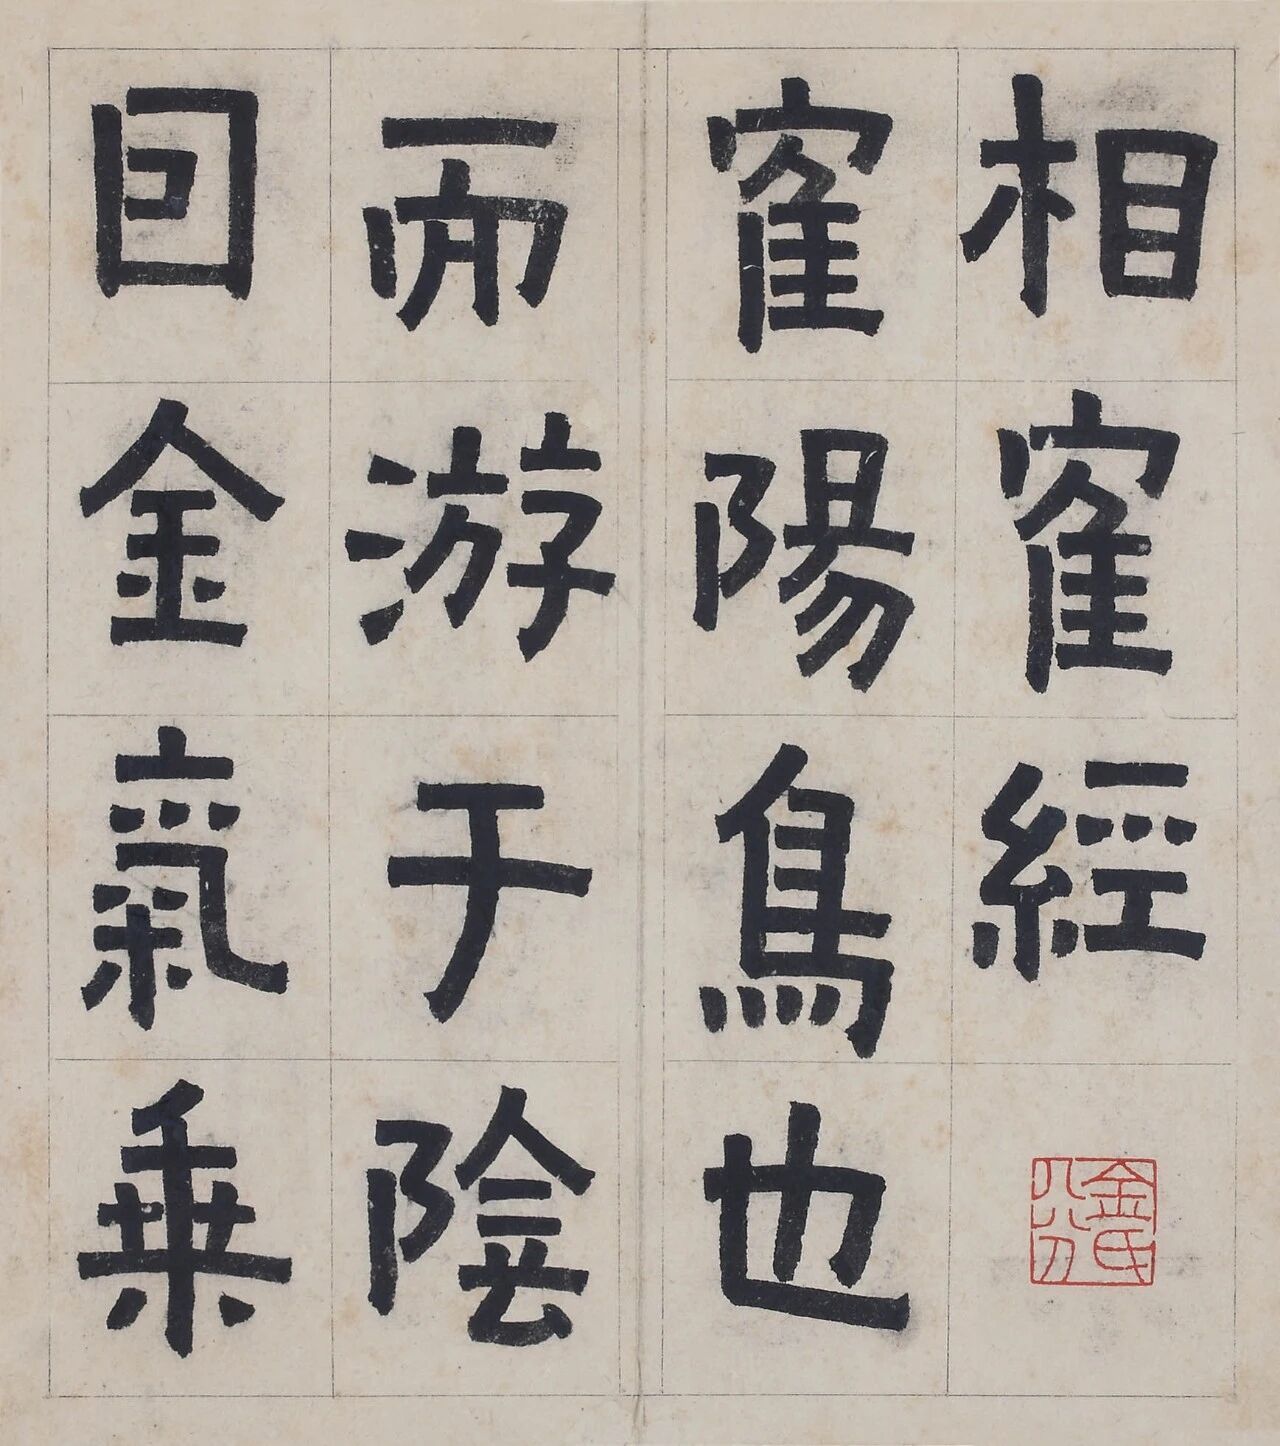 相寉經
寉陽鳥也
而游于陰
囙金氣乘
金氏八分